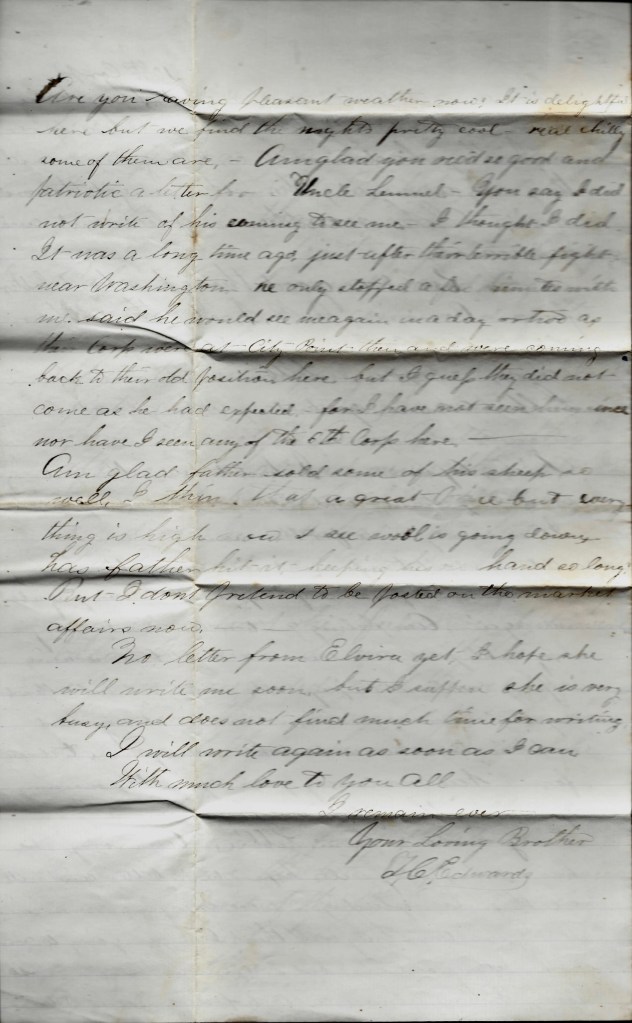 Are you having pleasant weather now? It is delightful
here but we find the nights pretty cool – real chilly
some of them are, – Am glad you rec'd so good and
patriotic a letter from Uncle Lemuel – You say I did
not write of his coming to see me – I thought I did
It was a long time ago, just after their terrible fight
near Washington he only stopped a few minutes with
me. said he would see me again in a day or two as
their Corp were at City Point then and were coming
back to their old position here but I guess they did not
come as he had expected – for I have not seen him since
nor have I seen any of the 6th Corp here, –
Am glad father sold some of his sheep so
well, I think at a great price but every
thing is high now I see wool is going down,
has father at keeping his hand so long.
But I dont pretend to be posted on the market
affairs now.
No letter from Elvira yet, I hope she
will write me soon, but I suppose she is very
busy, and does not find much time for writing
I will write again as soon as I can
With much love to you all
I remain ever
Your Loving Brother
Edwards